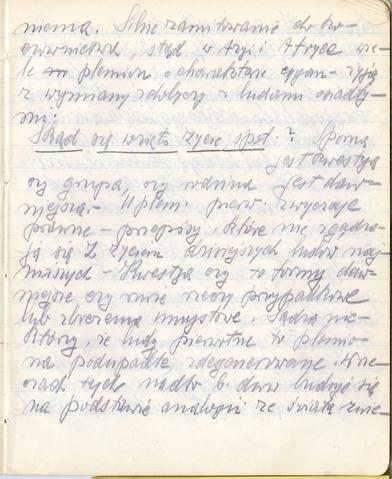 niema. Silne zamiłowanie do ko-
czownictwa, stąd w Azji i Afryce wie-
le plemion o charakterze cygan. żyją
z wymiany zdobyczy z ludami osiadły-
mi.
Skąd się wzięło życie społ.? Sporną
jest kwestyą
czy grupa, czy rodzina jest daw-
niejszą. – U plem. pierw. zwyczaje
prawne – przepisy, które nie zgadza-
ją się z życiem dzisiejszych ludów naj
niższych – Kwestja czy to formy daw-
niejsze czy może rzeczy przypadkowe
lub zboczenia umysłowe. Sądzą nie-
którzy, że ludy pierwotne to plemio-
na podupadłe, zdegenerowane.
tych nadto b. daw. ludzie się
na podstawie analogii ze świata zwie-